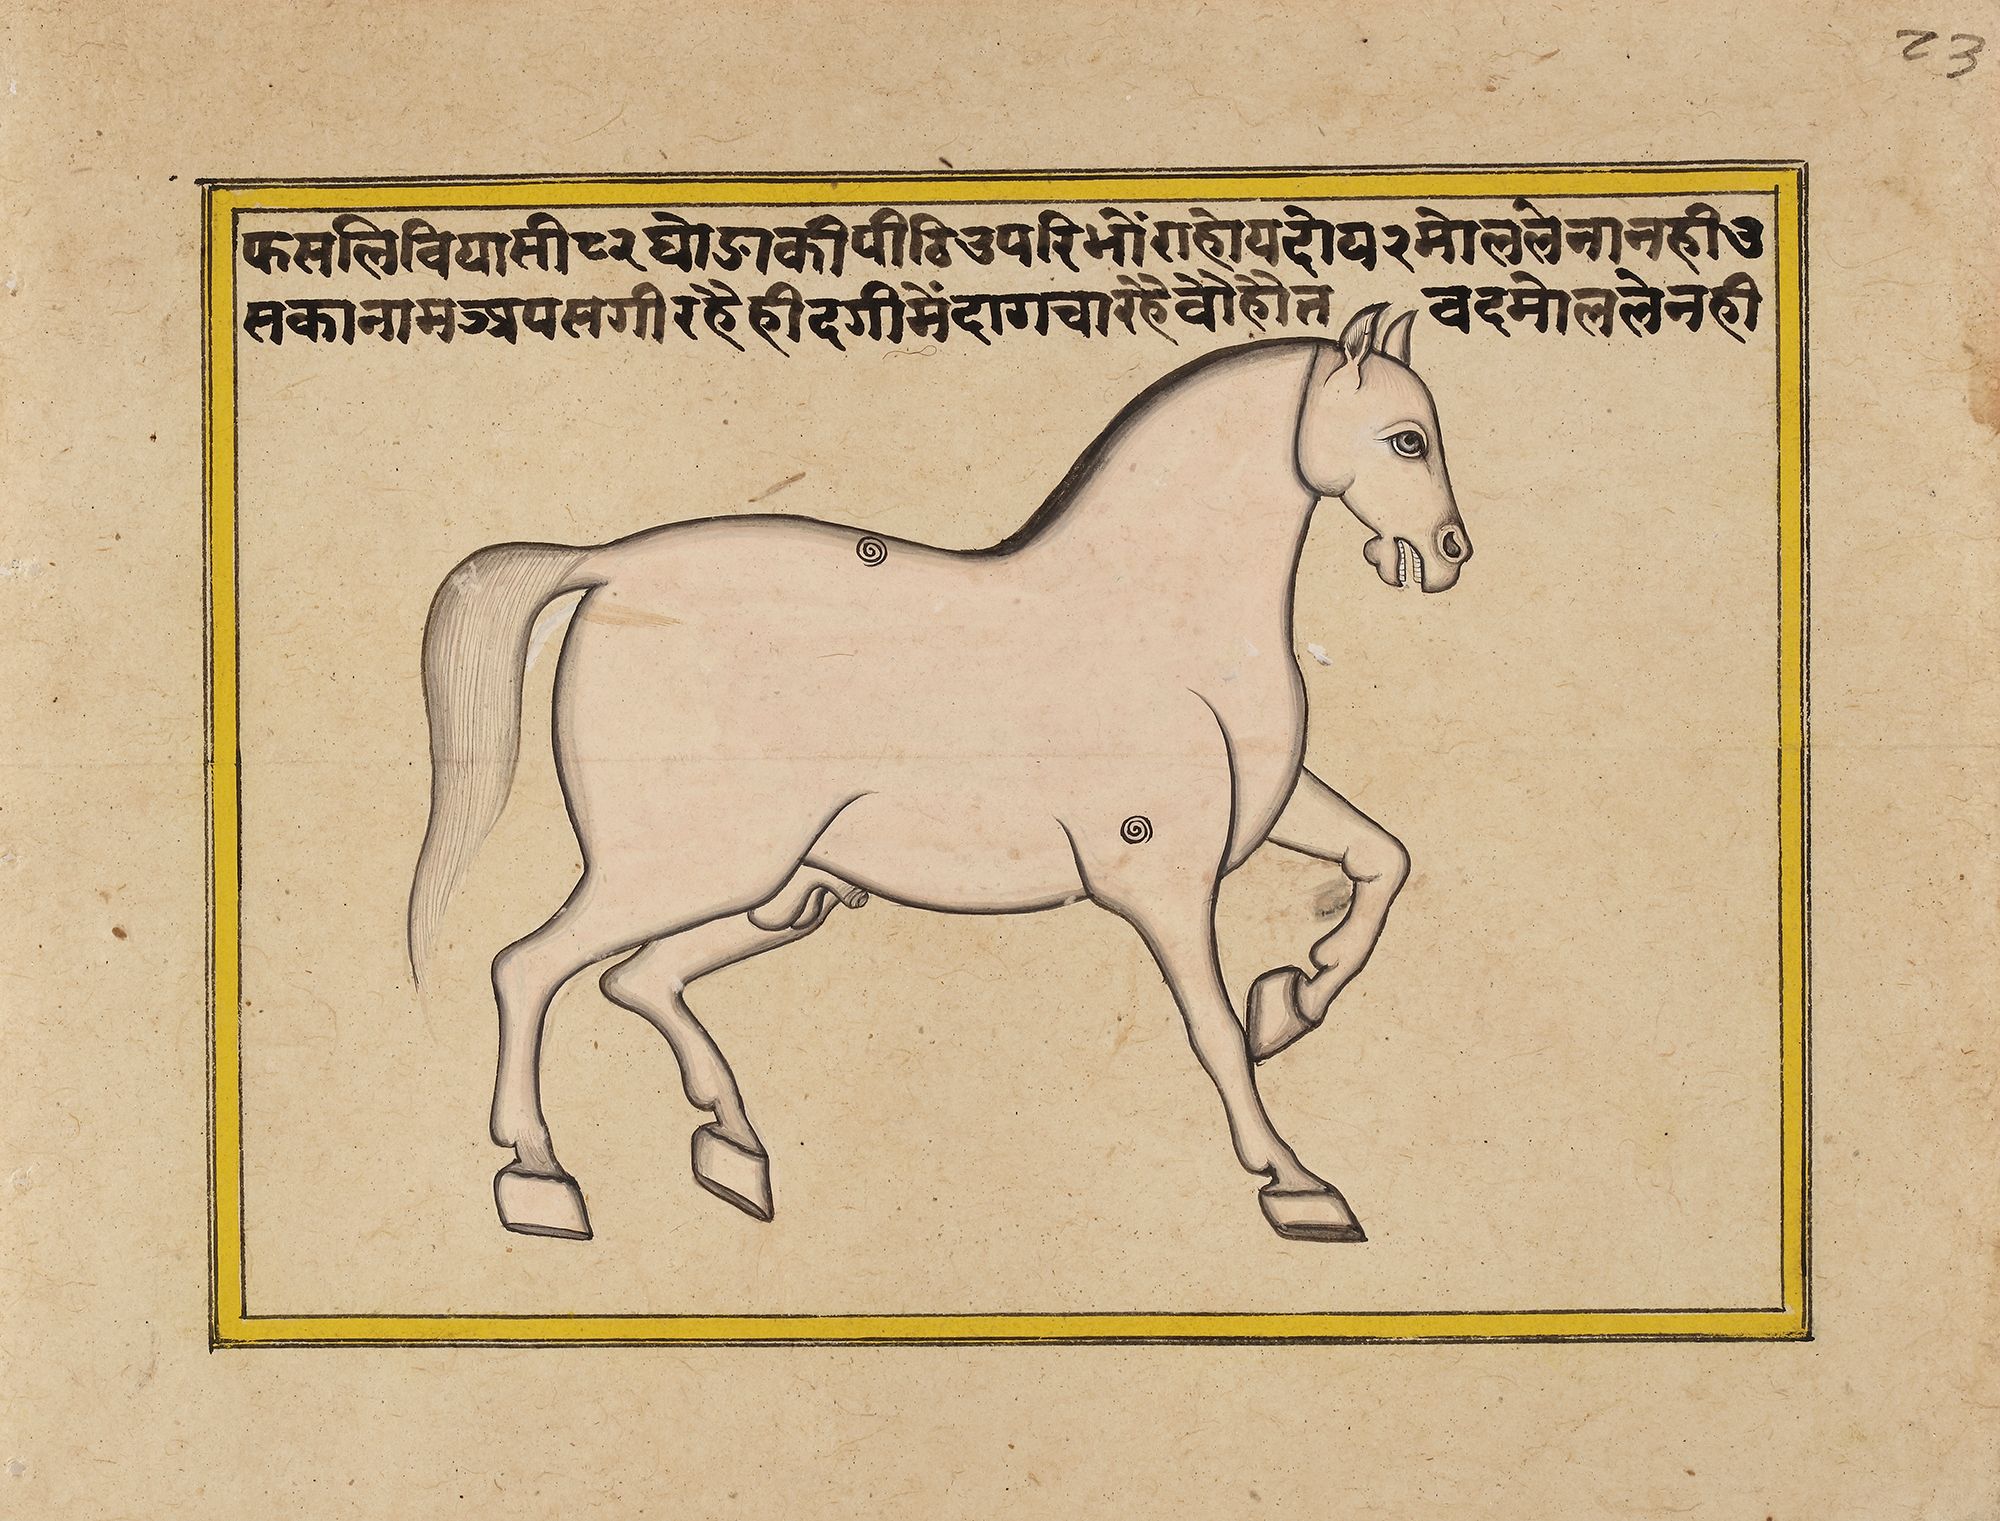 23
फसलि वियासी ८२ घोङा की पीठि उपरि भोंरा होय दोय २ मोल लेना नही उ
स का नाम अपसगी रहे ही दगी में दाग चा रहे वोहोत वद मोल लेनही